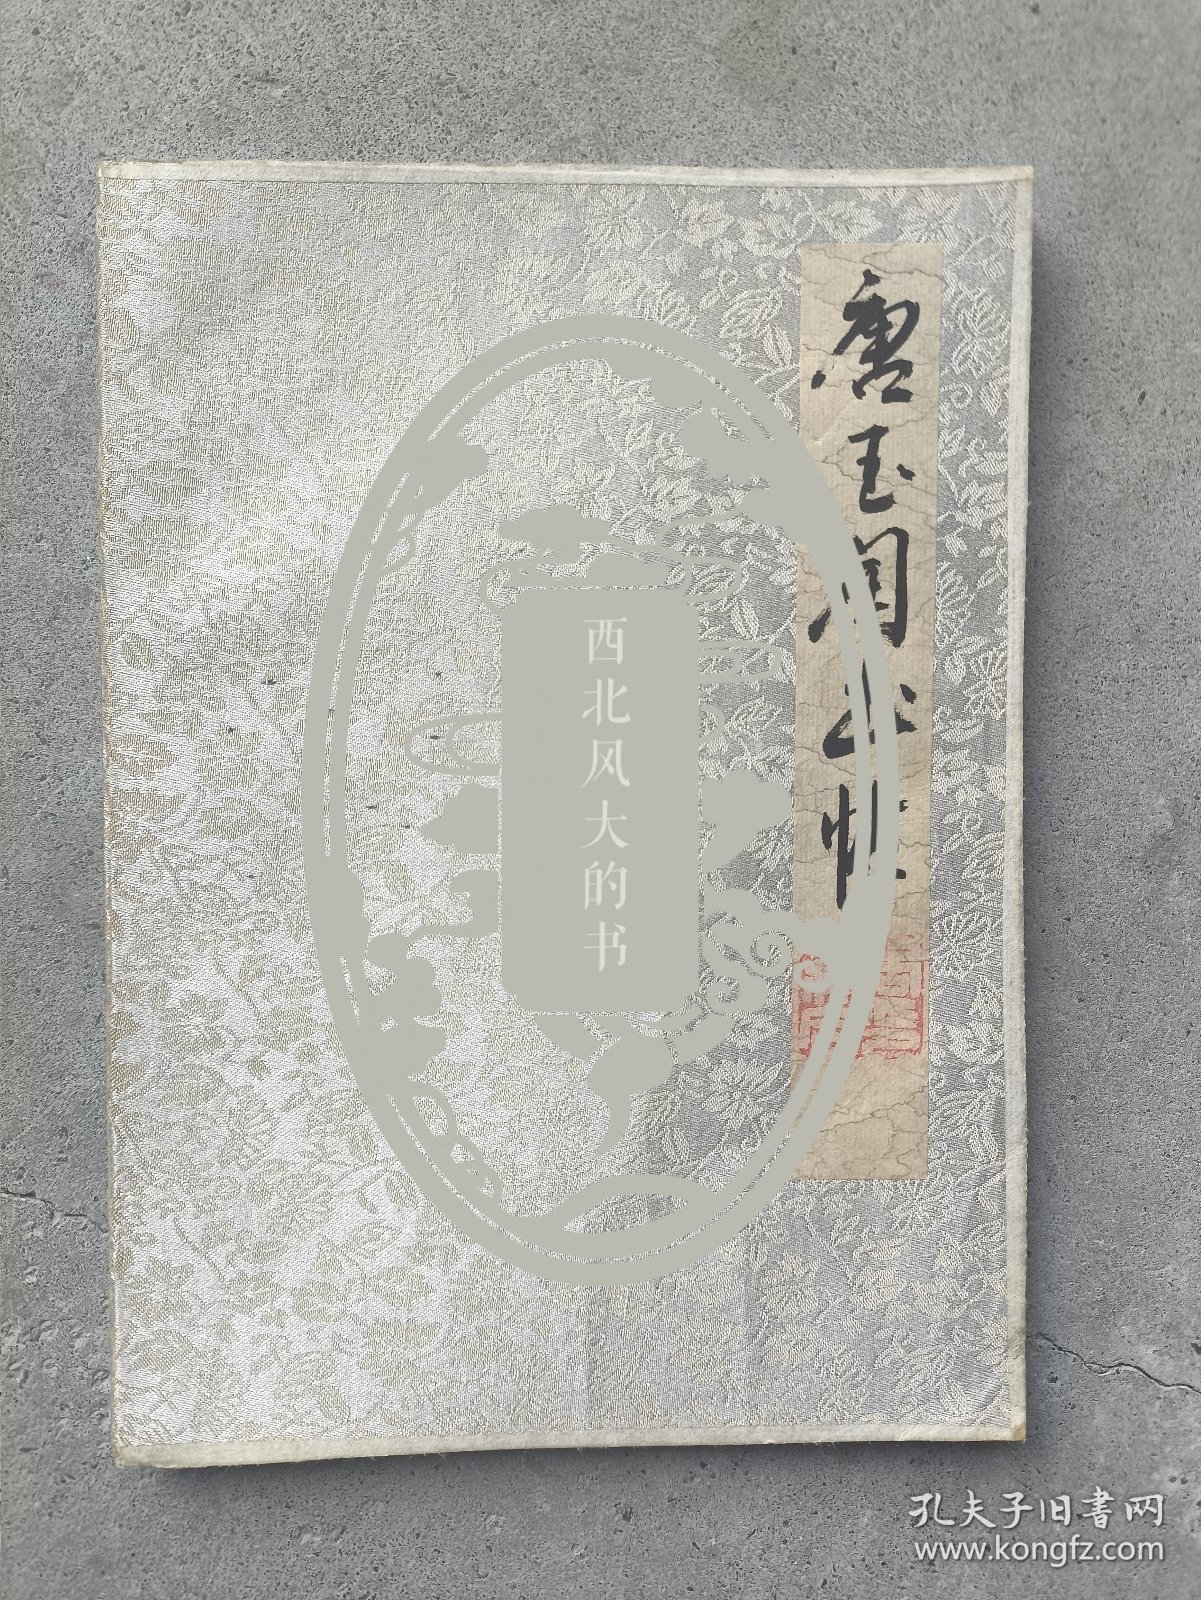 唐玉润书帖
西北风大的书
孔夫子旧書网
www.kongfz.com